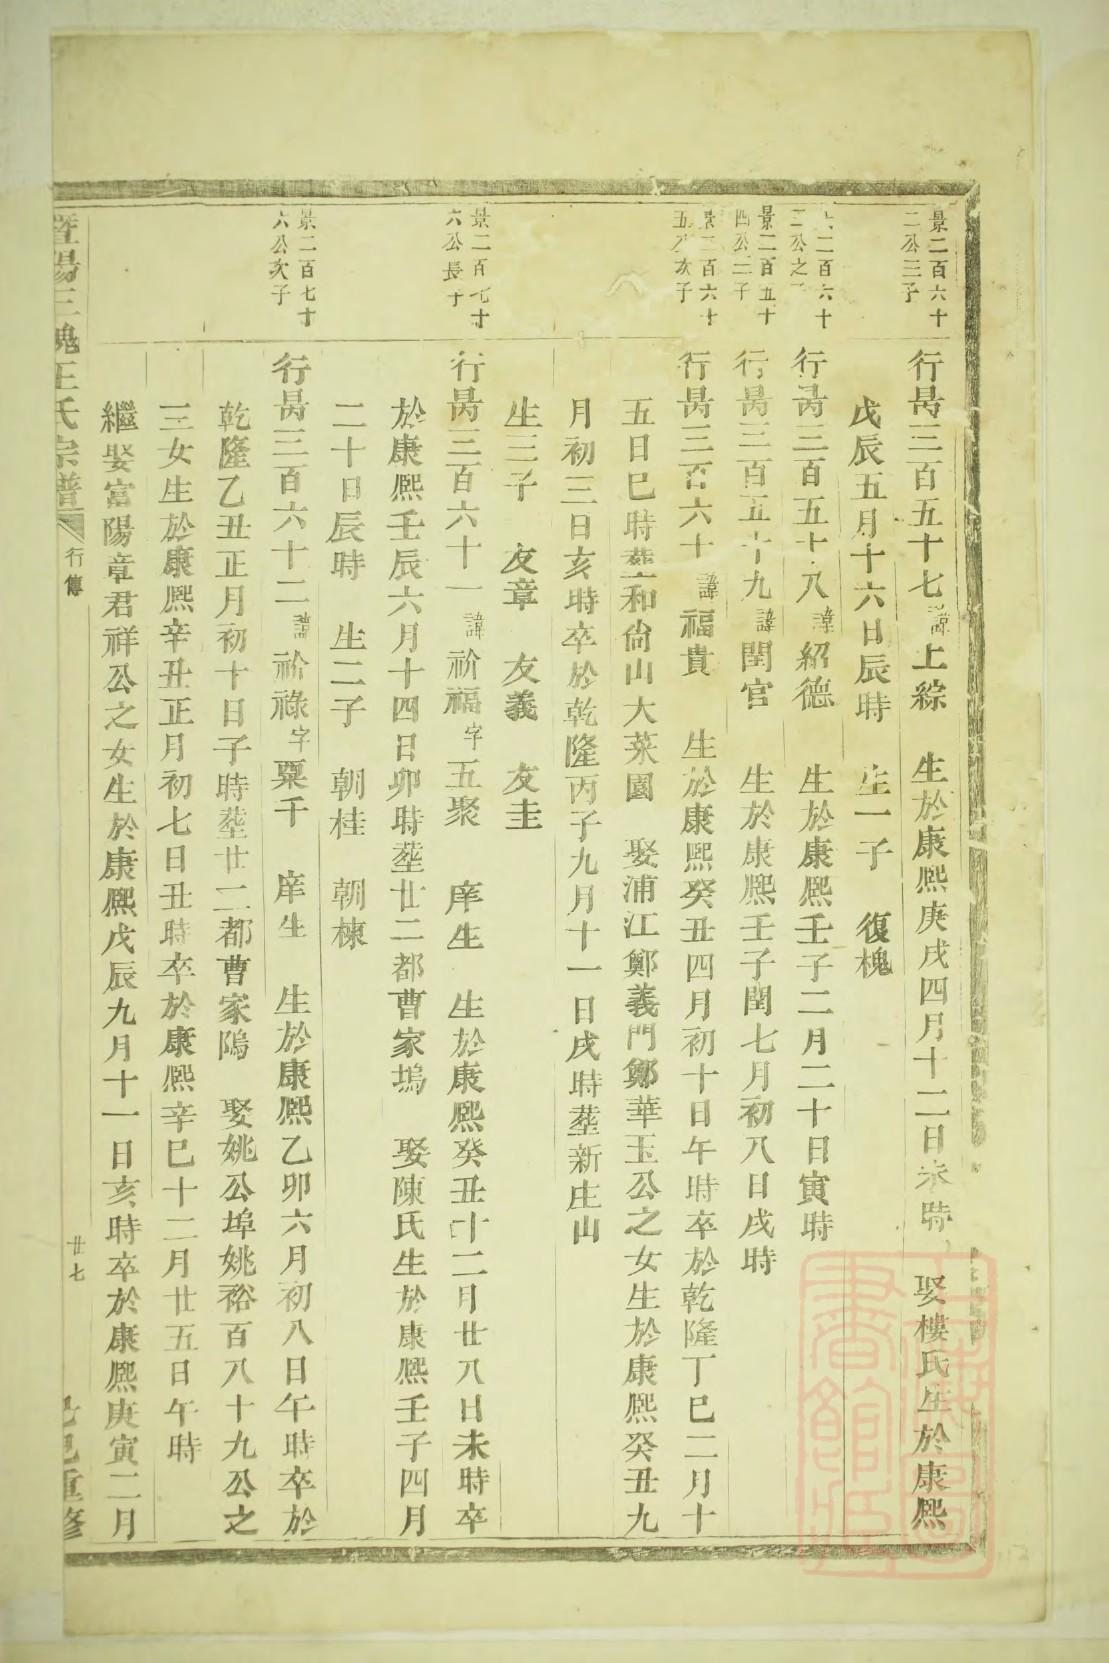 景二百六十
二公三子
行昺三百五十七諱上綜　生於康熙庚戌四月十二日未時　娶樓氏生於康熙
戊辰五月十六日辰時　生一子　復槐
二百六十
二公之
行昺三百五十八諱紹德　生於康熙壬子二月二十日寅時
景二百五十
四公二子
行昺三百五十九諱閏官　生於康熙壬子閏七月初八日戌時
景二百六十
五公次子
行昺三百六十諱福貴　生於康熙癸丑四月初十日午時卒於乾隆丁巳二月十
五日巳時塟和尙山大菜園　娶浦江鄭義門鄭華玉公之女生於康熙癸丑九
月初三日亥時卒於乾隆丙子九月十一日戌時塟新庄山
生三子　友章　友義　友圭
景二百七十
六公長子
行昺三百六十一諱祄福字五聚　庠生　生於康熙癸丑十二月廿八日未時卒
於康熙壬辰六月十四日卯時塟廿二都曹家塢　娶陳氏生於康熙壬子四月
二十日辰時　生二子　朝桂　朝棟
景二百七十
六公次子
行昺三百六十二諱祄祿字粟千　庠生　生於康熙乙卯六月初八日午時卒於
乾隆乙丑正月初十日子時塟廿二都曹家隖　娶姚公埠姚裕百八十九公之
三女生於康熙辛丑正月初七日丑時卒於康熙辛巳十二月廿五日午時
繼娶富陽章君祥公之女生於康熙戊辰九月十一日亥時卒於康熙庚寅二月
暨陽三槐王氏宗譜　行傳　廿七　己巳重修